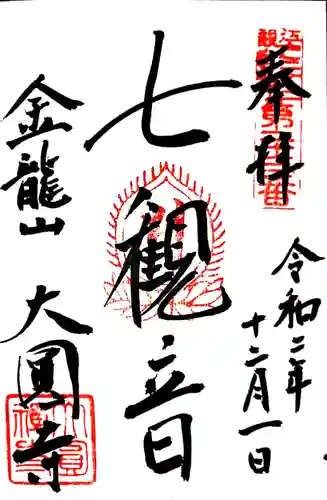 奉拝
令和二年
十二月一日
七観音
金龍山
大圓寺